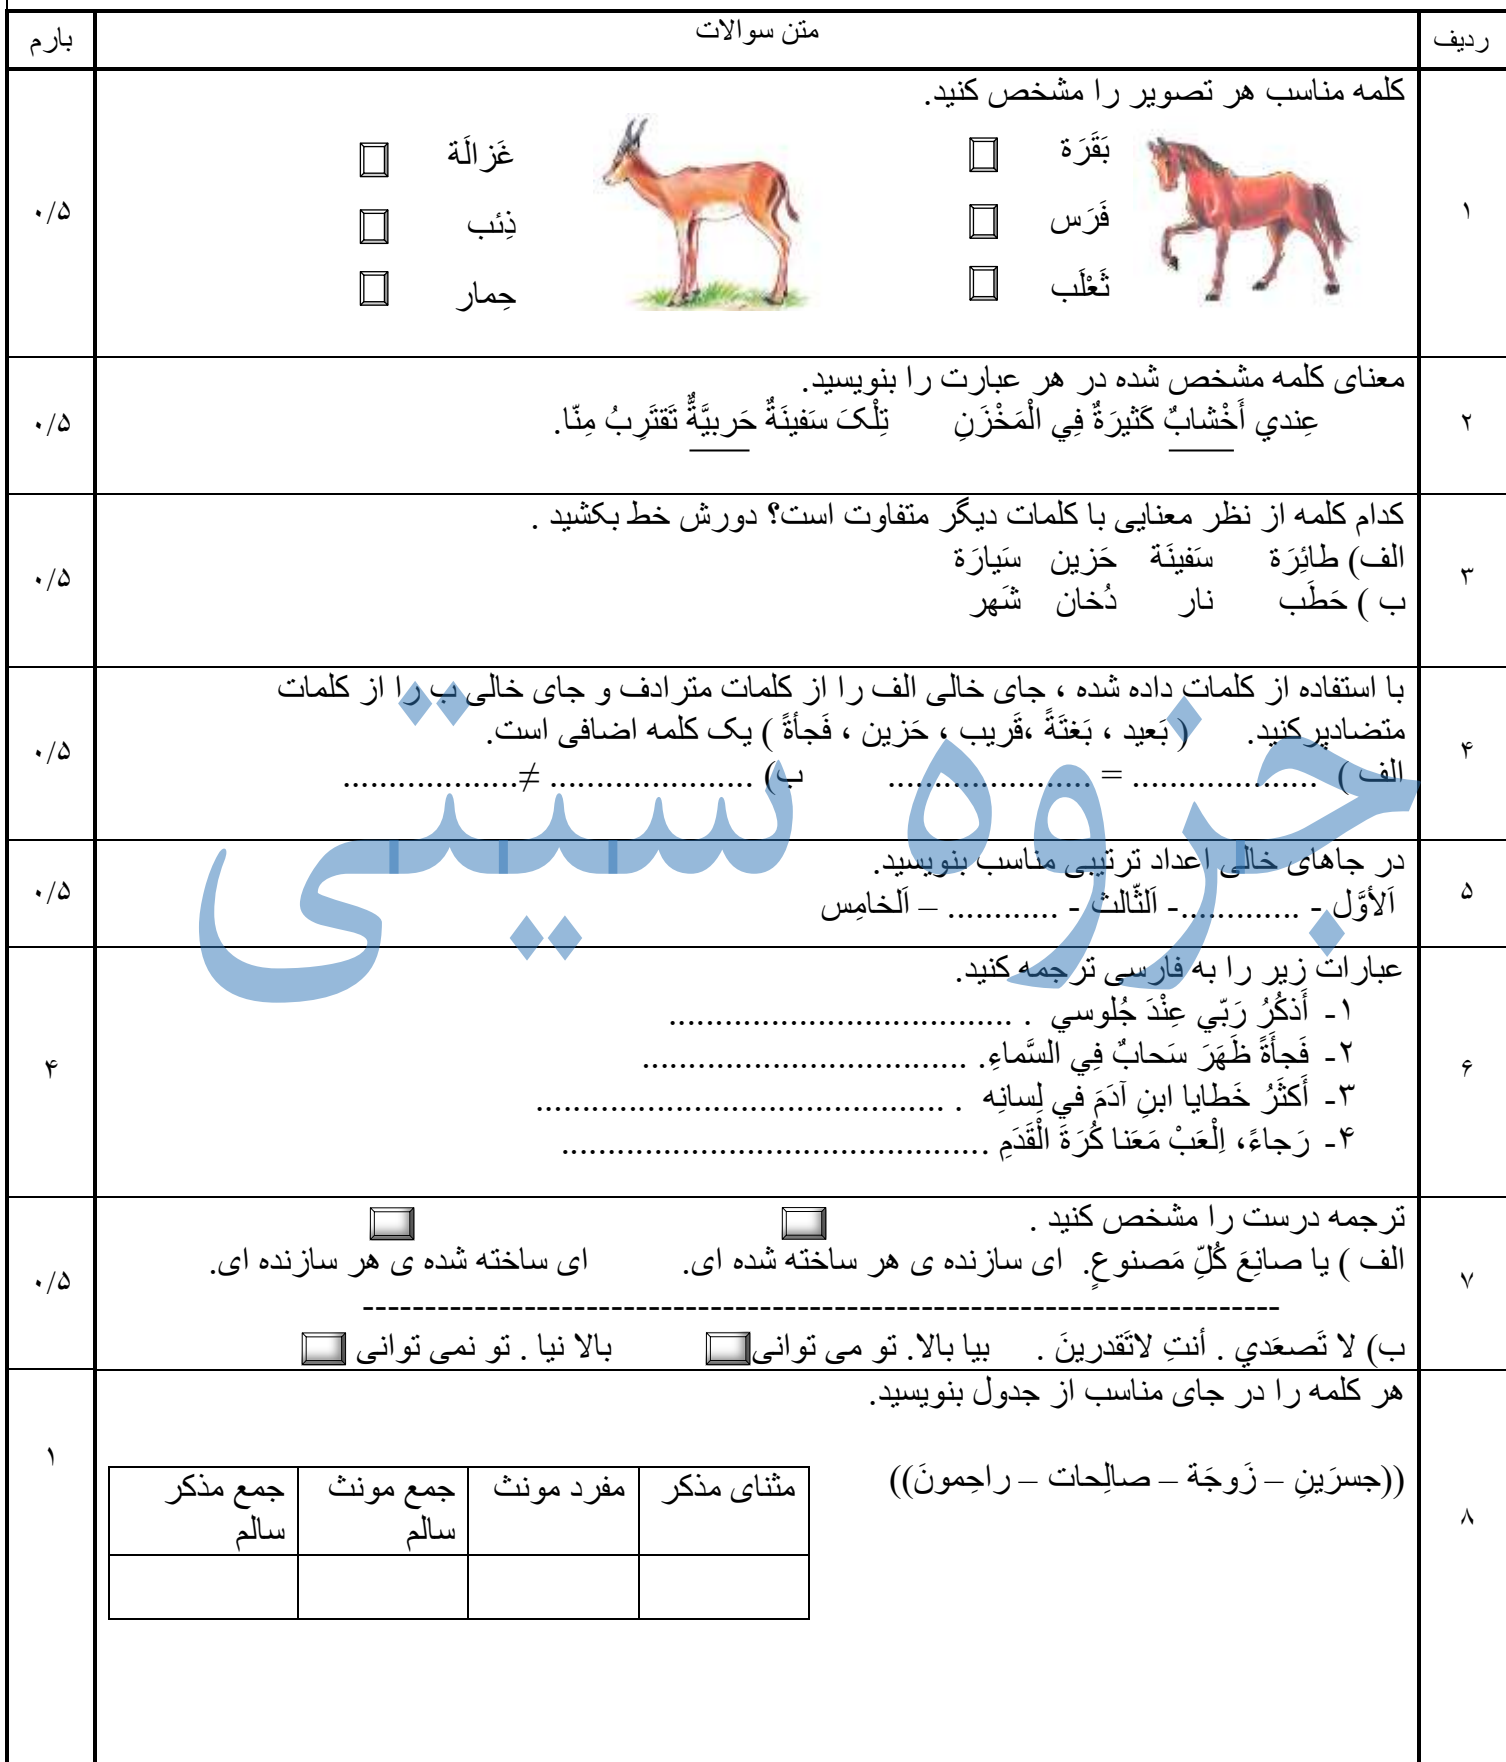 ردیف متن سوالات بارم
۱ کلمه مناسب هر تصویر را مشخص کنید. ۰/۵
بَقَرَة غَزالَة
فَرَس ذِئب
ثَعْلَب حِمار
معنای کلمه مشخص شده در هر عبارت را بنویسید.
۲ عِندي أَخْشابٌ كَثيرَةٌ فِي الْمَخْزَنِ تِلْکَ سَفينَةٌ حَربيَّةٌ تَقتَرِبُ مِنّا. ۰/۵
کدام کلمه از نظر معنایی با کلمات دیگر متفاوت است؟ دورش خط بکشید .
۳ الف) طائِرَة سَفينَة حَزين سَيارَة ۰/۵
ب ) حَطَب نار دُخان شَهر
با استفاده از کلمات داده شده ، جای خالی الف را از کلمات مترادف و جای خالی ب را از کلمات
۴ متضادپرکنید. ( بَعيد ، بَغتَةً ،قَريب ، حَزين ، فَجأةً ) یک کلمه اضافی است. ۰/۵
الف ) .................... = ...................... ب) ...................... ≠...................
در جاهای خالی اعداد ترتیبی مناسب بنویسید.
۵ اَلأوَّل - .............- اَلثّالث - ............ – اَلخامِس ۰/۵
عبارات زیر را به فارسی ترجمه کنید.
۱- أَذكُرُ رَبّي عِنْدَ جُلوسي . .....................................
۲- فَجأَةً ظَهَرَ سَحابٌ فِي السَّماءِ. ...................................
۶ ۳- أَكثَرُ خَطايا ابنِ آدَمَ في لِسانِه . ............................................ ۴
۴- رَجاءً، اِلْعَبْ مَعَنا كُرَةَ الْقَدَمِ ..............................................
ترجمه درست را مشخص کنید .
۷ الف ) یا صانِعَ كُلِّ مَصنوعٍ. ای سازنده ی هر ساخته شده ای. ای ساخته شده ی هر سازنده ای. ۰/۵
--------------------------------------------------------------------------
ب) لا تَصعَدي . أنتِ لاتَقدرينَ . بیا بالا. تو می توانی بالا نیا . تو نمی توانی
هر کلمه را در جای مناسب از جدول بنویسید.
۸ ((جسرَينِ – زَوجَة – صالِحات – راحِمونَ)) ۱
مثنای مذکر مفرد مونث جمع مونث سالم جمع مذکر سالم
جزوه سیتی